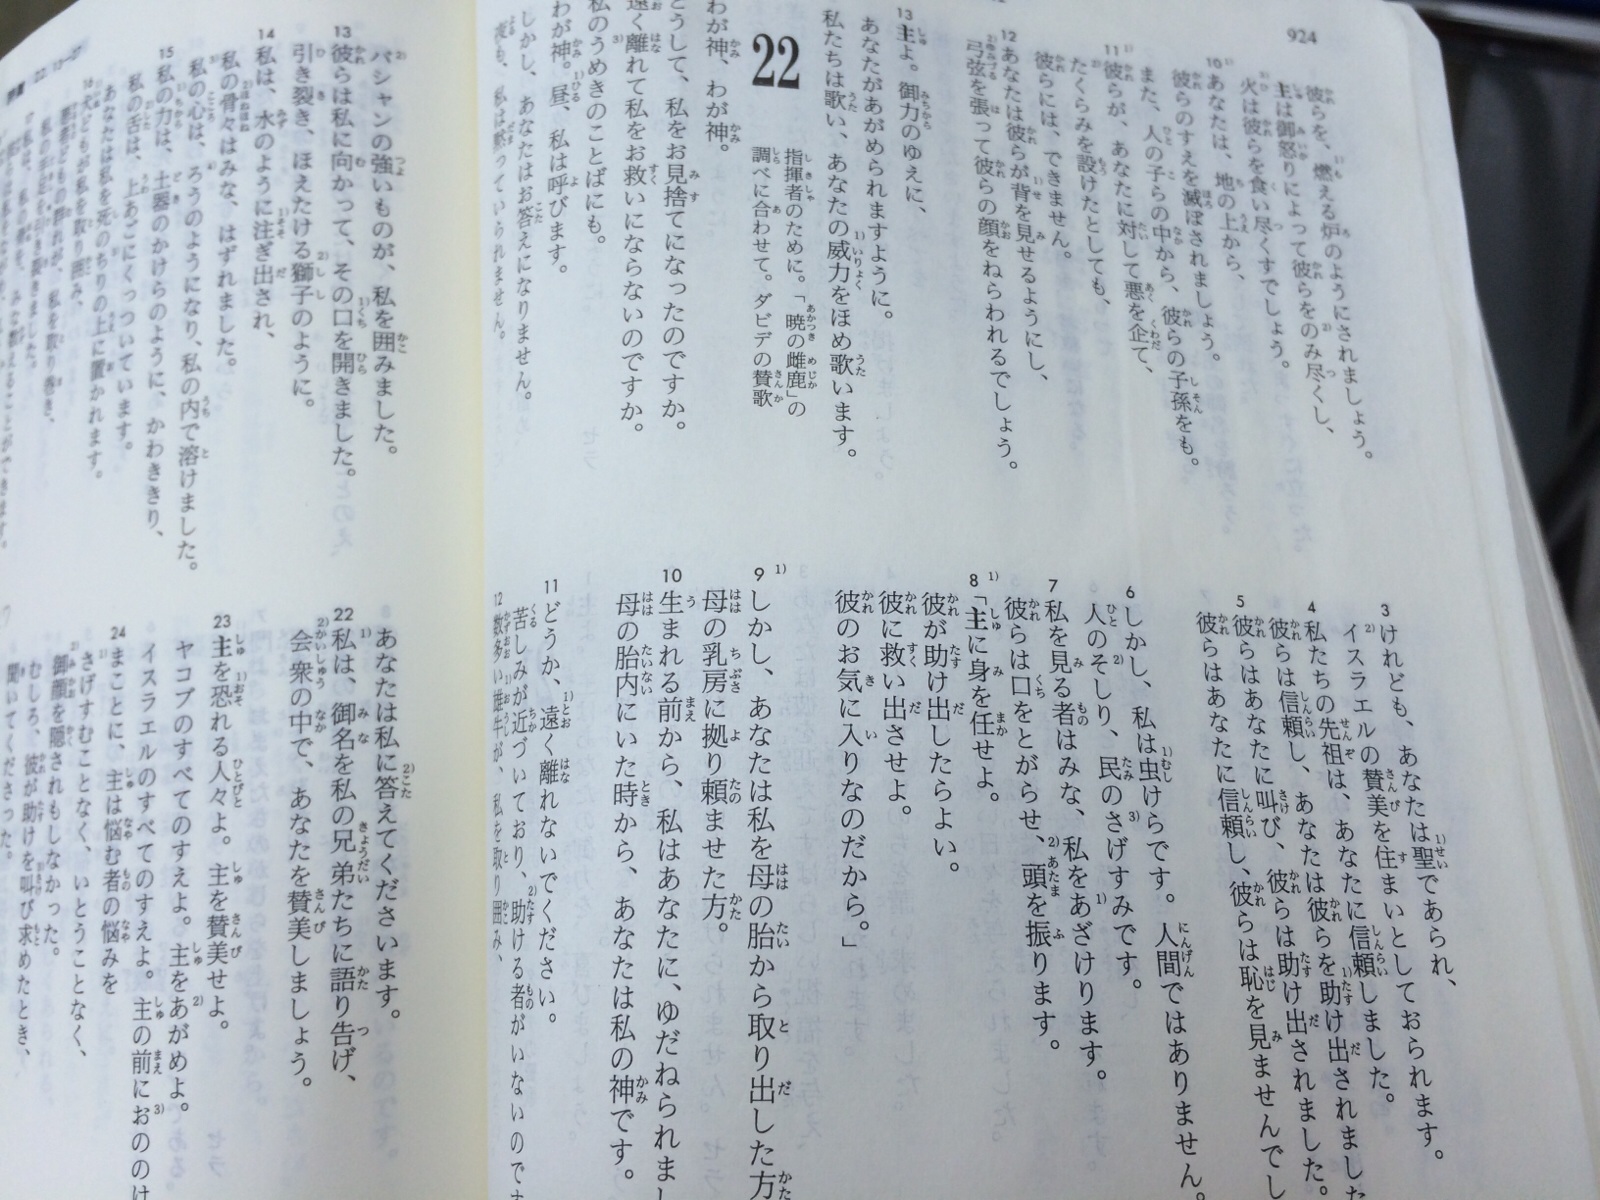 924
彼らを、燃える炉のようにされましょう。
主は御怒りによって彼らをのみ尽くし、
火は彼らを食い尽くすでしょう。
10 あなたは、地の上から、
彼らのすえを滅ぼされましょう。
また、人の子らの中から、彼らの子孫をも。
11 彼らが、あなたに対して悪を企て、
たくらみを設けたとしても、
彼らには、できません。
12 あなたは彼らが背を見せるようにし、
弓弦を張って彼らの顔をねらわれるでしょう。
13 主よ。御力のゆえに、
あなたがあがめられますように。
私たちは歌い、あなたの威力をほめ歌います。
22
指揮者のために。「暁の雌鹿」の
調べに合わせて。ダビデの賛歌
わが神、わが神。
どうして、私をお見捨てになったのですか。
遠く離れて私をお救いにならないのですか。
私のうめきのことばにも。
わが神。昼、私は呼びます。
しかし、あなたはお答えになりません。
夜も、私は黙っていられません。
3 けれども、あなたは聖であられ、
イスラエルの賛美を住まいとしておられます。
4 私たちの先祖は、あなたに信頼しました。
彼らは信頼し、あなたは彼らを助け出されました
5 彼らはあなたに叫び、彼らは助け出されました。
彼らはあなたに信頼し、彼らは恥を見ませんでし
6 しかし、私は虫けらです。人間ではありません。
人のそしり、民のさげすみです。
7 私を見る者はみな、私をあざけります。
彼らは口をとがらせ、頭を振ります。
8 「主に身を任せよ。
彼が助け出したらよい。
彼に救い出させよ。
彼のお気に入りなのだから。」
9 しかし、あなたは私を母の胎から取り出した方
母の乳房に拠り頼ませた方。
10 生まれる前から、私はあなたに、ゆだねられまし
母の胎内にいた時から、あなたは私の神です。
11 どうか、遠く離れないでください。
苦しみが近づいており、助ける者がいないのです
12 数多い雄牛が、私を取り囲み、
バシャンの強いものが、私を囲みました。
13 彼らは私に向かって、その口を開きました。
引き裂き、ほえたける獅子のように。
14 私は、水のように注ぎ出され、
私の骨々はみな、はずれました。
私の心は、ろうのようになり、私の内で溶けました。
15 私の力は、土器のかけらのように、かわききり、
私の舌は、上あごにくっついています。
あなたは私を死のちりの上に置かれます。
あなたは私に答えてくださいます。
22 私は、御名を私の兄弟たちに語り告げ、
会衆の中で、あなたを賛美しましょう。
23 主を恐れる人々よ。主を賛美せよ。
ヤコブのすべてのすえよ。主をあがめよ。
イスラエルのすべてのすえよ。主の前におののけ
24 まことに、主は悩む者の悩みを
さげすむことなく、いとうことなく、
御顔を隠されもしなかった。
むしろ、彼が助けを叫び求めたとき、
聞いてくださった。